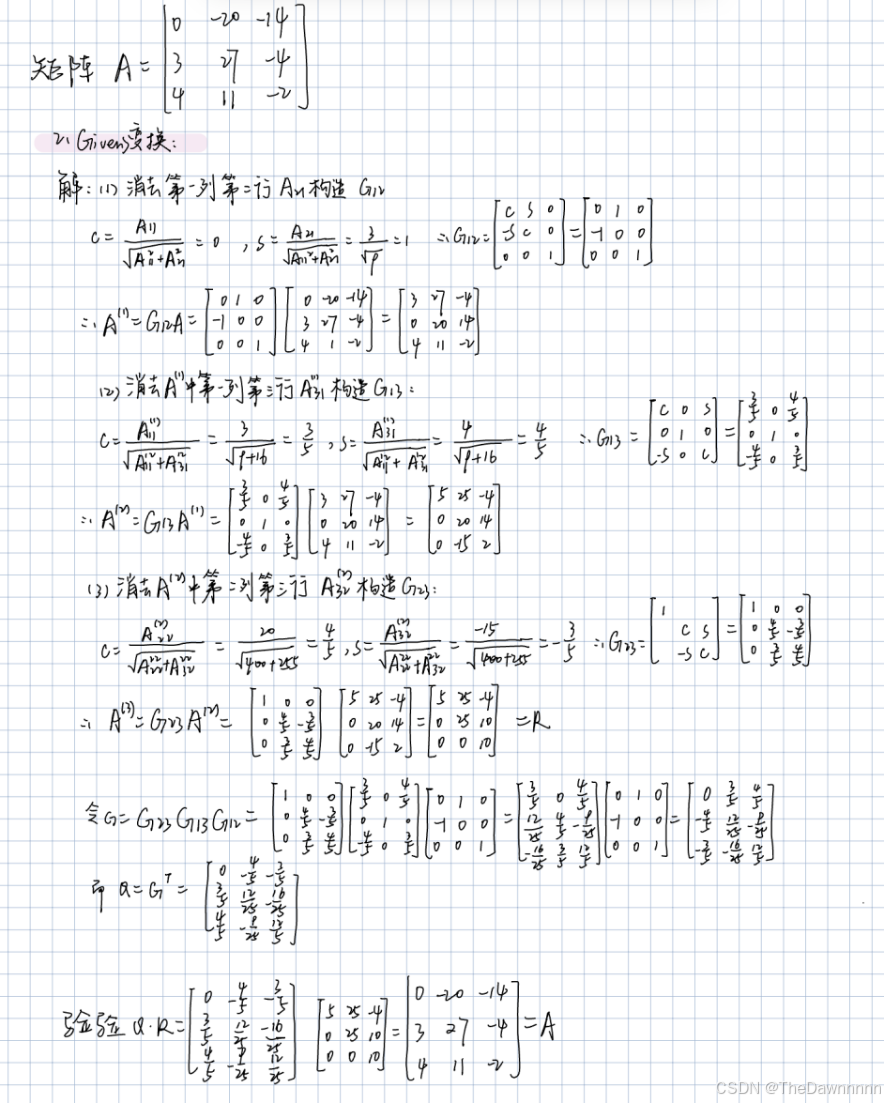 矩阵 A = [0 -20 -14; 3 27 -4; 4 11 -2]
2、Givens变换:
解: (1) 消去第一列第二行 A₂₁ 构造 G₁₂
c = A₁₁/√(A₁₁²+A₂₁²) = 0 , s = A₂₁/√(A₁₁²+A₂₁²) = 3/√9 = 1 ∴ G₁₂ = [c s 0; -s c 0; 0 0 1] = [0 1 0; -1 0 0; 0 0 1]
∴ A⁽¹⁾ = G₁₂A = [0 1 0; -1 0 0; 0 0 1] [0 -20 -14; 3 27 -4; 4 1 -2] = [3 27 -4; 0 20 14; 4 11 -2]
(2) 消去 A⁽¹⁾ 中第一列第三行 A₃₁⁽¹⁾ 构造 G₁₃:
c = A₁₁⁽¹⁾/√(A₁₁²+A₃₁²) = 3/√(9+16) = 3/5 , s = A₃₁⁽¹⁾/√(A₁₁²+A₃₁²) = 4/√(9+16) = 4/5 ∴ G₁₃ = [c 0 s; 0 1 0; -s 0 c] = [3/5 0 4/5; 0 1 0; -4/5 0 3/5]
∴ A⁽²⁾ = G₁₃A⁽¹⁾ = [3/5 0 4/5; 0 1 0; -4/5 0 3/5] [3 27 -4; 0 20 14; 4 11 -2] = [5 25 -4; 0 20 14; 0 -15 2]
(3) 消去 A⁽²⁾ 中第二列第三行 A₃₂⁽²⁾ 构造 G₂₃:
c = A₂₂⁽²⁾/√(A₂₂²+A₃₂²) = 20/√(400+255) = 4/5 , s = A₃₂⁽²⁾/√(A₂₂²+A₃₂²) = -15/√(400+255) = -3/5 ∴ G₂₃ = [1; c s; -s c] = [1 0 0; 0 4/5 -3/5; 0 3/5 4/5]
∴ A⁽³⁾ = G₂₃A⁽²⁾ = [1 0 0; 0 4/5 -3/5; 0 3/5 4/5] [5 25 -4; 0 20 14; 0 -15 2] = [5 25 -4; 0 25 10; 0 0 10] = R
令 G = G₂₃G₁₃G₁₂ = [1 0 0; 0 4/5 -3/5; 0 3/5 4/5] [3/5 0 4/5; 0 1 0; -4/5 0 3/5] [0 1 0; -1 0 0; 0 0 1] = [3/5 0 4/5; 12/25 4/5 -9/25; -16/25 3/5 12/5] [0 1 0; -1 0 0; 0 0 1] = [0 3/5 4/5; -4/5 12/25 -9/25; -3/5 -16/25 12/5]
即 Q = Gᵀ = [0 -4/5 -3/5; 3/5 12/25 -16/25; 4/5 -9/25 12/5]
验验 Q·R = [0 -4/5 -3/5; 3/5 12/25 -16/25; 4/5 -9/25 12/25] [5 25 -4; 0 25 10; 0 0 10] = [0 -20 -14; 3 27 -4; 4 11 -2] = A
CSDN @TheDawnnnnn